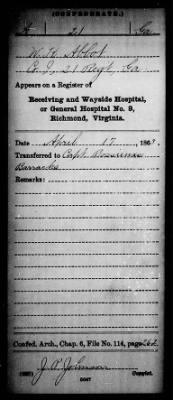 (CONFEDERATE.)
A 21 Ga
W. H. Abbot
Co. I, 21 Regt. Ga
Appears on a Register of
Receiving and Wayside Hospital,
or General Hospital No. 9,
Richmond, Virginia.
Date April 17, 186
Transferred to Capt.
Barracks
Remarks:
Confed. Arch., Chap. 6, File No. 114, page
J. P. Johnson
Copyist.